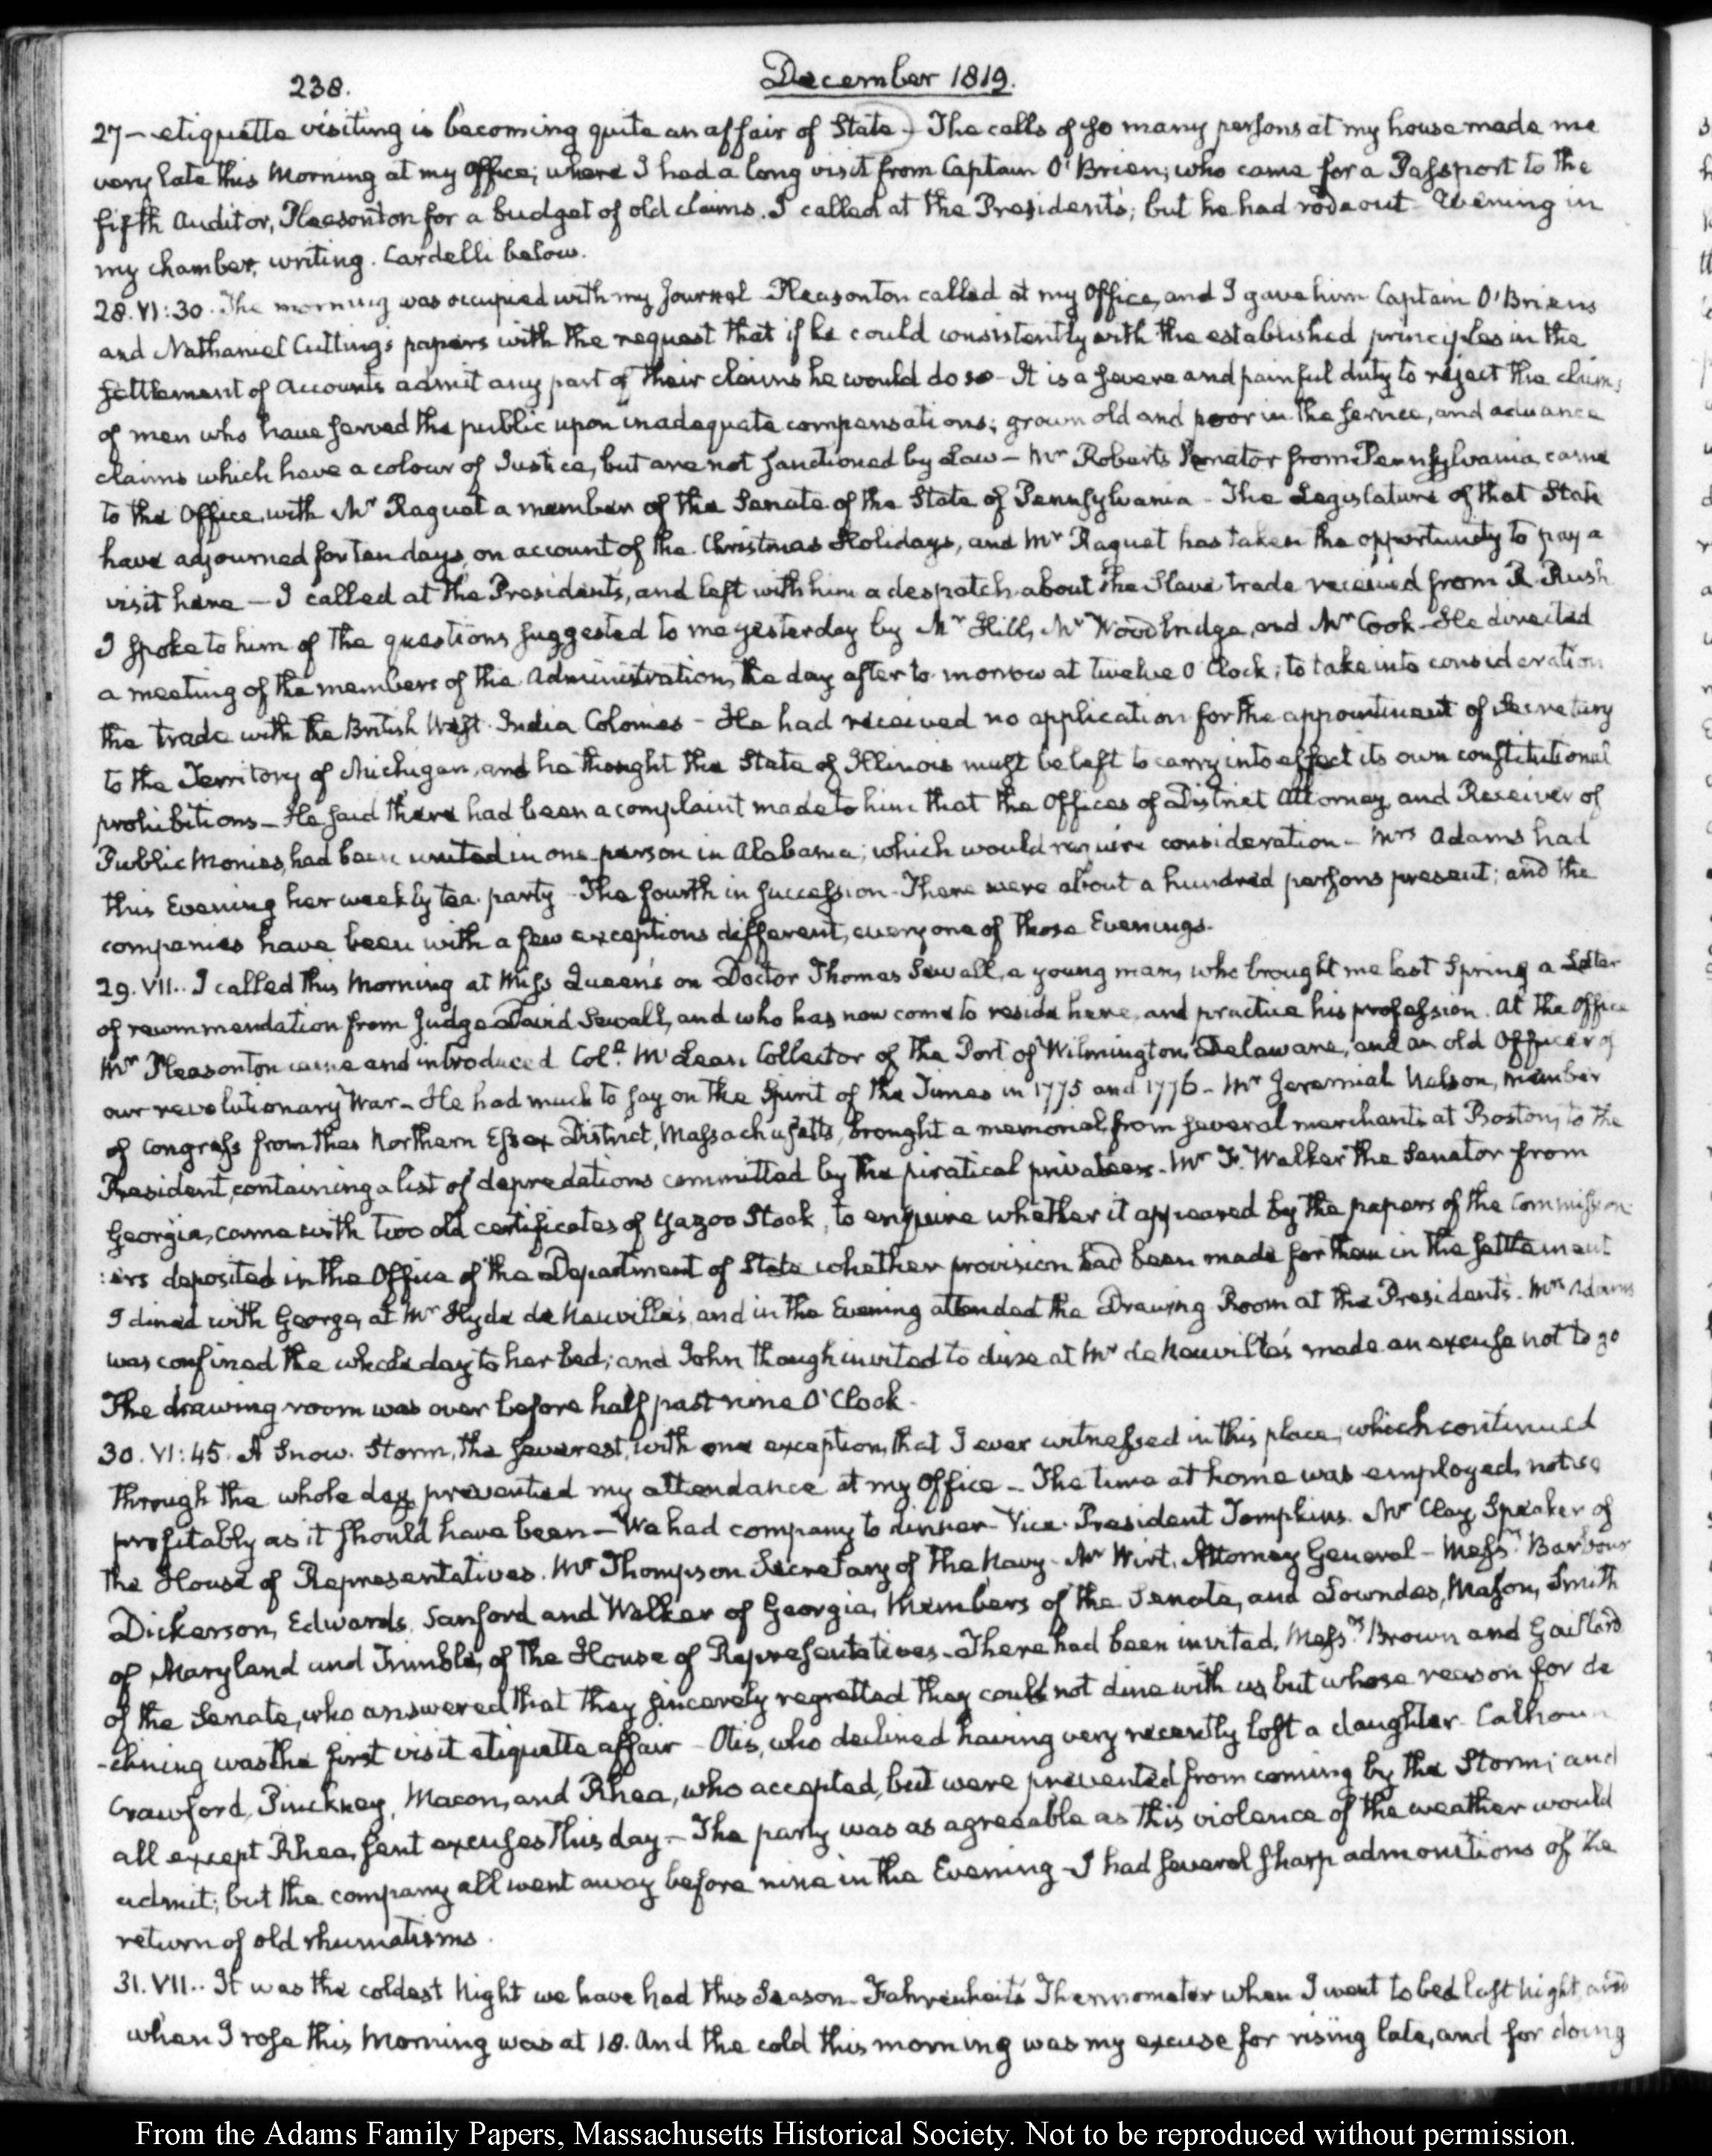 238.
December 1819.
27 – etiquette visiting is becoming quite an affair of State – The calls of so many persons at my house made me
very late this Morning at my Office; where I had a long visit from Captain O'Brien; who came for a Passport to the
fifth Auditor, Pleasonton for a budget of old claims. I called at the President's; but he had rode out – Evening in
my chamber, writing. Cardelli below.
28. VI:30. The morning was occupied with my Journal – Pleasonton called at my Office, and I gave him Captain O'Briens
and Nathaniel Cutting's papers with the request that if he could consistently with the established principles in the
settlement of Accounts admit any part of their claims he would do so – It is a severe and painful duty to reject the claims
of men who have served the public upon inadequate compensations; grown old and poor in the service, and advance
claims which have a colour of Justice, but are not sanctioned by Law – Mr Roberts Senator from Pennsylvania, came
to the Office, with Mr Raguet a member of the Senate of the State of Pennsylvania – The Legislature of that State
have adjourned for ten days, on account of the Christmas Holidays, and Mr Raguet has taken the opportunity to pay a
visit here — I called at the President's, and left with him a despatch about the Slave trade received from R. Rush
I spoke to him of the questions suggested to me yesterday by Mr Hill, Mr Woodbridge, and Mr Cook – He directed
a meeting of the members of the Administration, the day after to-morrow at twelve O'Clock; to take into consideration
the trade with the British West-India Colonies – He had received no application for the appointment of Secretary
to the Territory of Michigan, and he thought the State of Illinois must be left to carry into effect its own constitutional
prohibitions – He said there had been a complaint made to him that the Offices of District Attorney, and Receiver of
Public Monies, had been united in one person in Alabama; which would require consideration – Mrs Adams had
this Evening her weekly tea-party – The fourth in succession – There were about a hundred persons present; and the
companies have been with a few exceptions different, every one of those Evenings.
29. VII.. I called this Morning at Miss Queen's on Doctor Thomas Sewall, a young man, who brought me last Spring a Letter
of recommendation from Judge David Sewall, and who has now come to reside here, and practice his profession. At the Office
Mr Pleasonton came and introduced Col.l McLean, Collector of the Port of Wilmington, Delaware, and an old Officer of
our revolutionary War – He had much to say on the Spirit of the Times in 1775 and 1776 – Mr Jeremiah Nelson, member
of Congress from the Northern Essex District, Massachusetts, brought a memorial from several merchants at Boston, to the
President, containing a list of depredations committed by the piratical privateers – Mr F. Walker the Senator from
Georgia, came with two old certificates of Yazoo Stock, to enquire whether it appeared by the papers of the Commission
:ers deposited in the Office of the Department of State whether provision had been made for them in the settlement
I dined with George, at Mr Hyde de Neuville's, and in the Evening attended the Drawing Room at the President's. Mrs Adams
was confined the whole day to her bed; and John though invited to dine at Mr de Neuville's made an excuse not to go
The drawing room was over before half past nine O'Clock.
30. VI:45. A Snow-Storm, the severest, with one exception, that I ever witnessed in this place, which continued
through the whole day, prevented my attendance at my Office – The time at home was employed, not so
profitably as it should have been – We had company to dinner – Vice-President Tompkins. Mr Clay, Speaker of
the House of Representatives. Mr Thompson Secretary of the Navy – Mr Wirt, Attorney General – Mess.rs Barbour
Dickerson, Edwards, Sanford and Walker of Georgia, Members of the Senate, and Lowndes, Mason, Smith
of Maryland and Trimble, of the House of Representatives – There had been invited, Mess.rs Brown and Gaillard
of the Senate, who answered that they sincerely regretted they could not dine with us, but whose reason for de
-clining was the first visit etiquette affair – Otis, who declined having very recently lost a daughter – Calhoun
Crawford, Pinckney, Macon, and Rhea, who accepted, but were prevented from coming by the Storm; and
all except Rhea, sent excuses this day – The party was as agreeable as this violence of the weather would
admit; but the company all went away before nine in the Evening – I had several sharp admonitions of the
return of old rhumatisms.
31. VII.. It was the coldest Night we have had this Season – Fahrenheit's Thermometer when I went to bed last night, and
when I rose this Morning was at 18. And the cold this morning was my excuse for rising late, and for doing
From the Adams Family Papers, Massachusetts Historical Society. Not to be reproduced without permission.